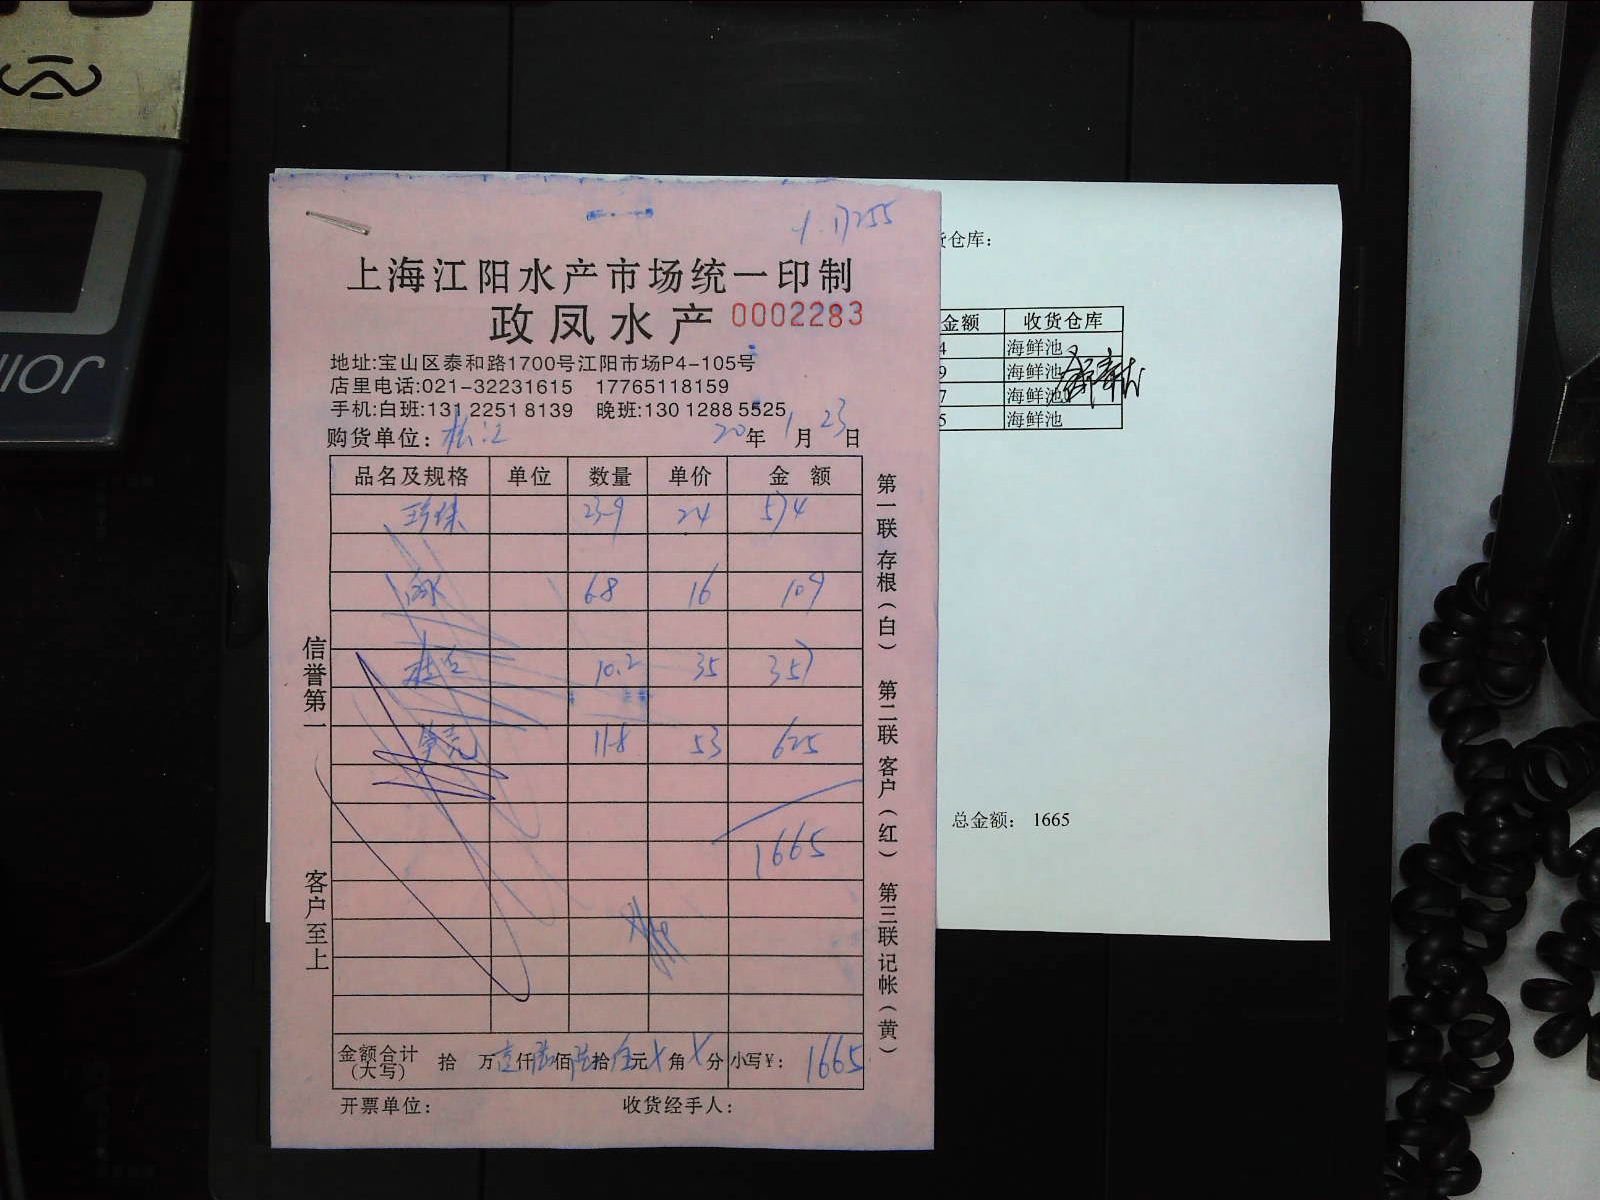 1.17255
上海江阳水产市场统一印制
政凤水产 0002283
地址:宝山区泰和路1700号江阳市场P4-105号
店里电话:021-32231615 17765118159
手机:白班:131 2251 8139 晚班:130 1288 5525
购货单位: 松江 20年1月23日
品名及规格 单位 数量 单价 金 额
珍珠 23.9 24 574
6.8 16 109
10.2 35 357
11.8 53 625
1665
金额合计(大写) 拾 万壹仟陆佰陆拾伍元X角X分 小写¥: 1665
开票单位: 收货经手人:
信誉第一
客户至上
第一联 存根(白) 第二联 客户(红) 第三联 记帐(黄)
货仓库:
金额 收货仓库
4 海鲜池
9 海鲜池
7 海鲜池
5 海鲜池
总金额: 1665
JOINIOR